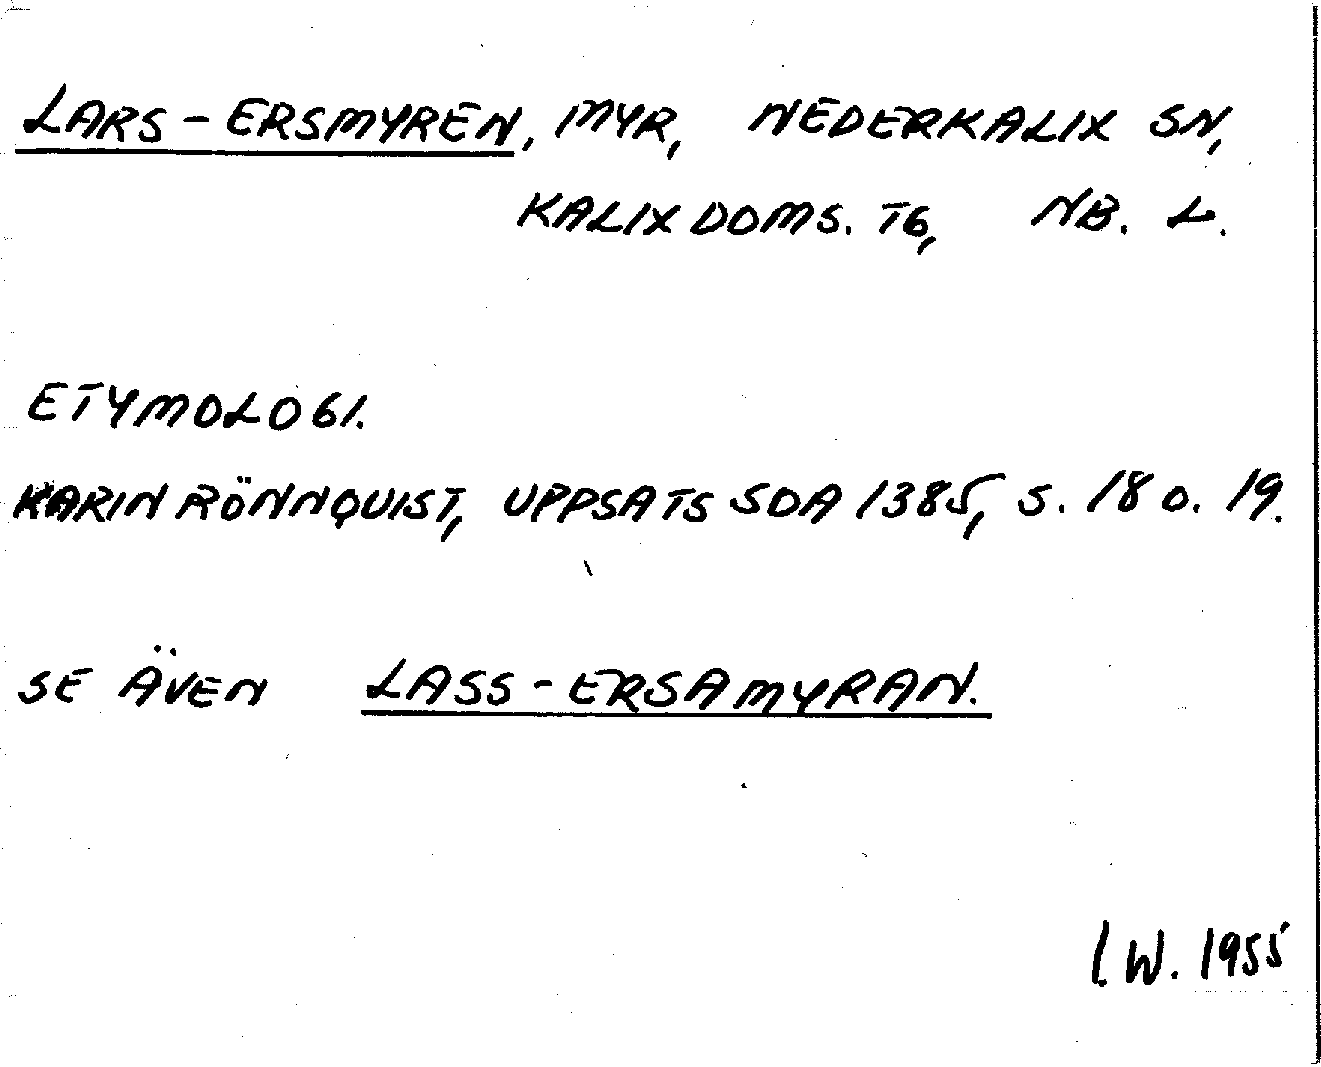 LARS-ERSMYREN, MYR, NEDERKALIX SN,
KALIX DOMS. TG, NB. L.
ETYMOLOGI.
KARIN RÖNNQUIST, UPPSATS SOA 1385, S. 18 O. 19.
SE ÄVEN LASS-ERSAMYRAN.
I.W. 1955